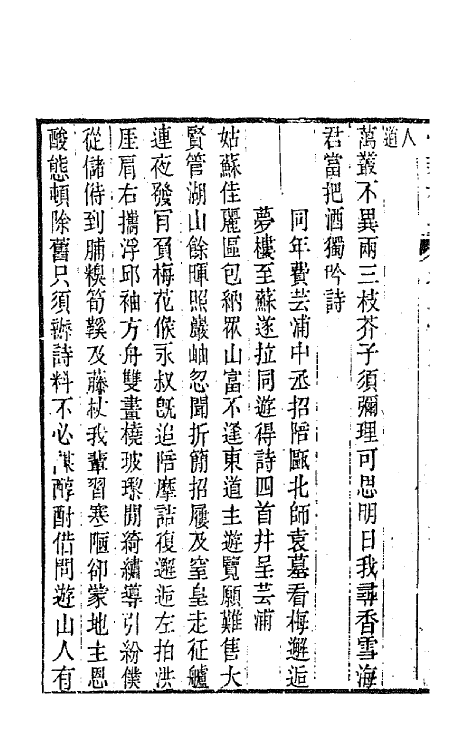 人道
萬叢不異兩三枝芥子須彌理可思明日我尋香雪海
君當把酒獨吟詩
同年費芸浦中丞招陪甌北師袁墓看梅邂逅
夢樓至蘇遂拉同遊得詩四首幷呈芸浦
姑蘇佳麗區包納眾山富不逢東道主遊覽願難售大
賢管湖山餘暉照巖岫忽聞折簡招屨及窒皇走征艫
連夜發肎負梅花候永叔旣追陪摩詰復邂逅左拍洪
厓肩右攜浮邱袖方舟雙畫橈玻瓈開綺繡導引紛僕
從儲偫到脯糗筍鞵及藤杖我輩習寒陋卻蒙地主恩
酸態頓除舊只須辦詩料不必謀醇酎借問遊山人有